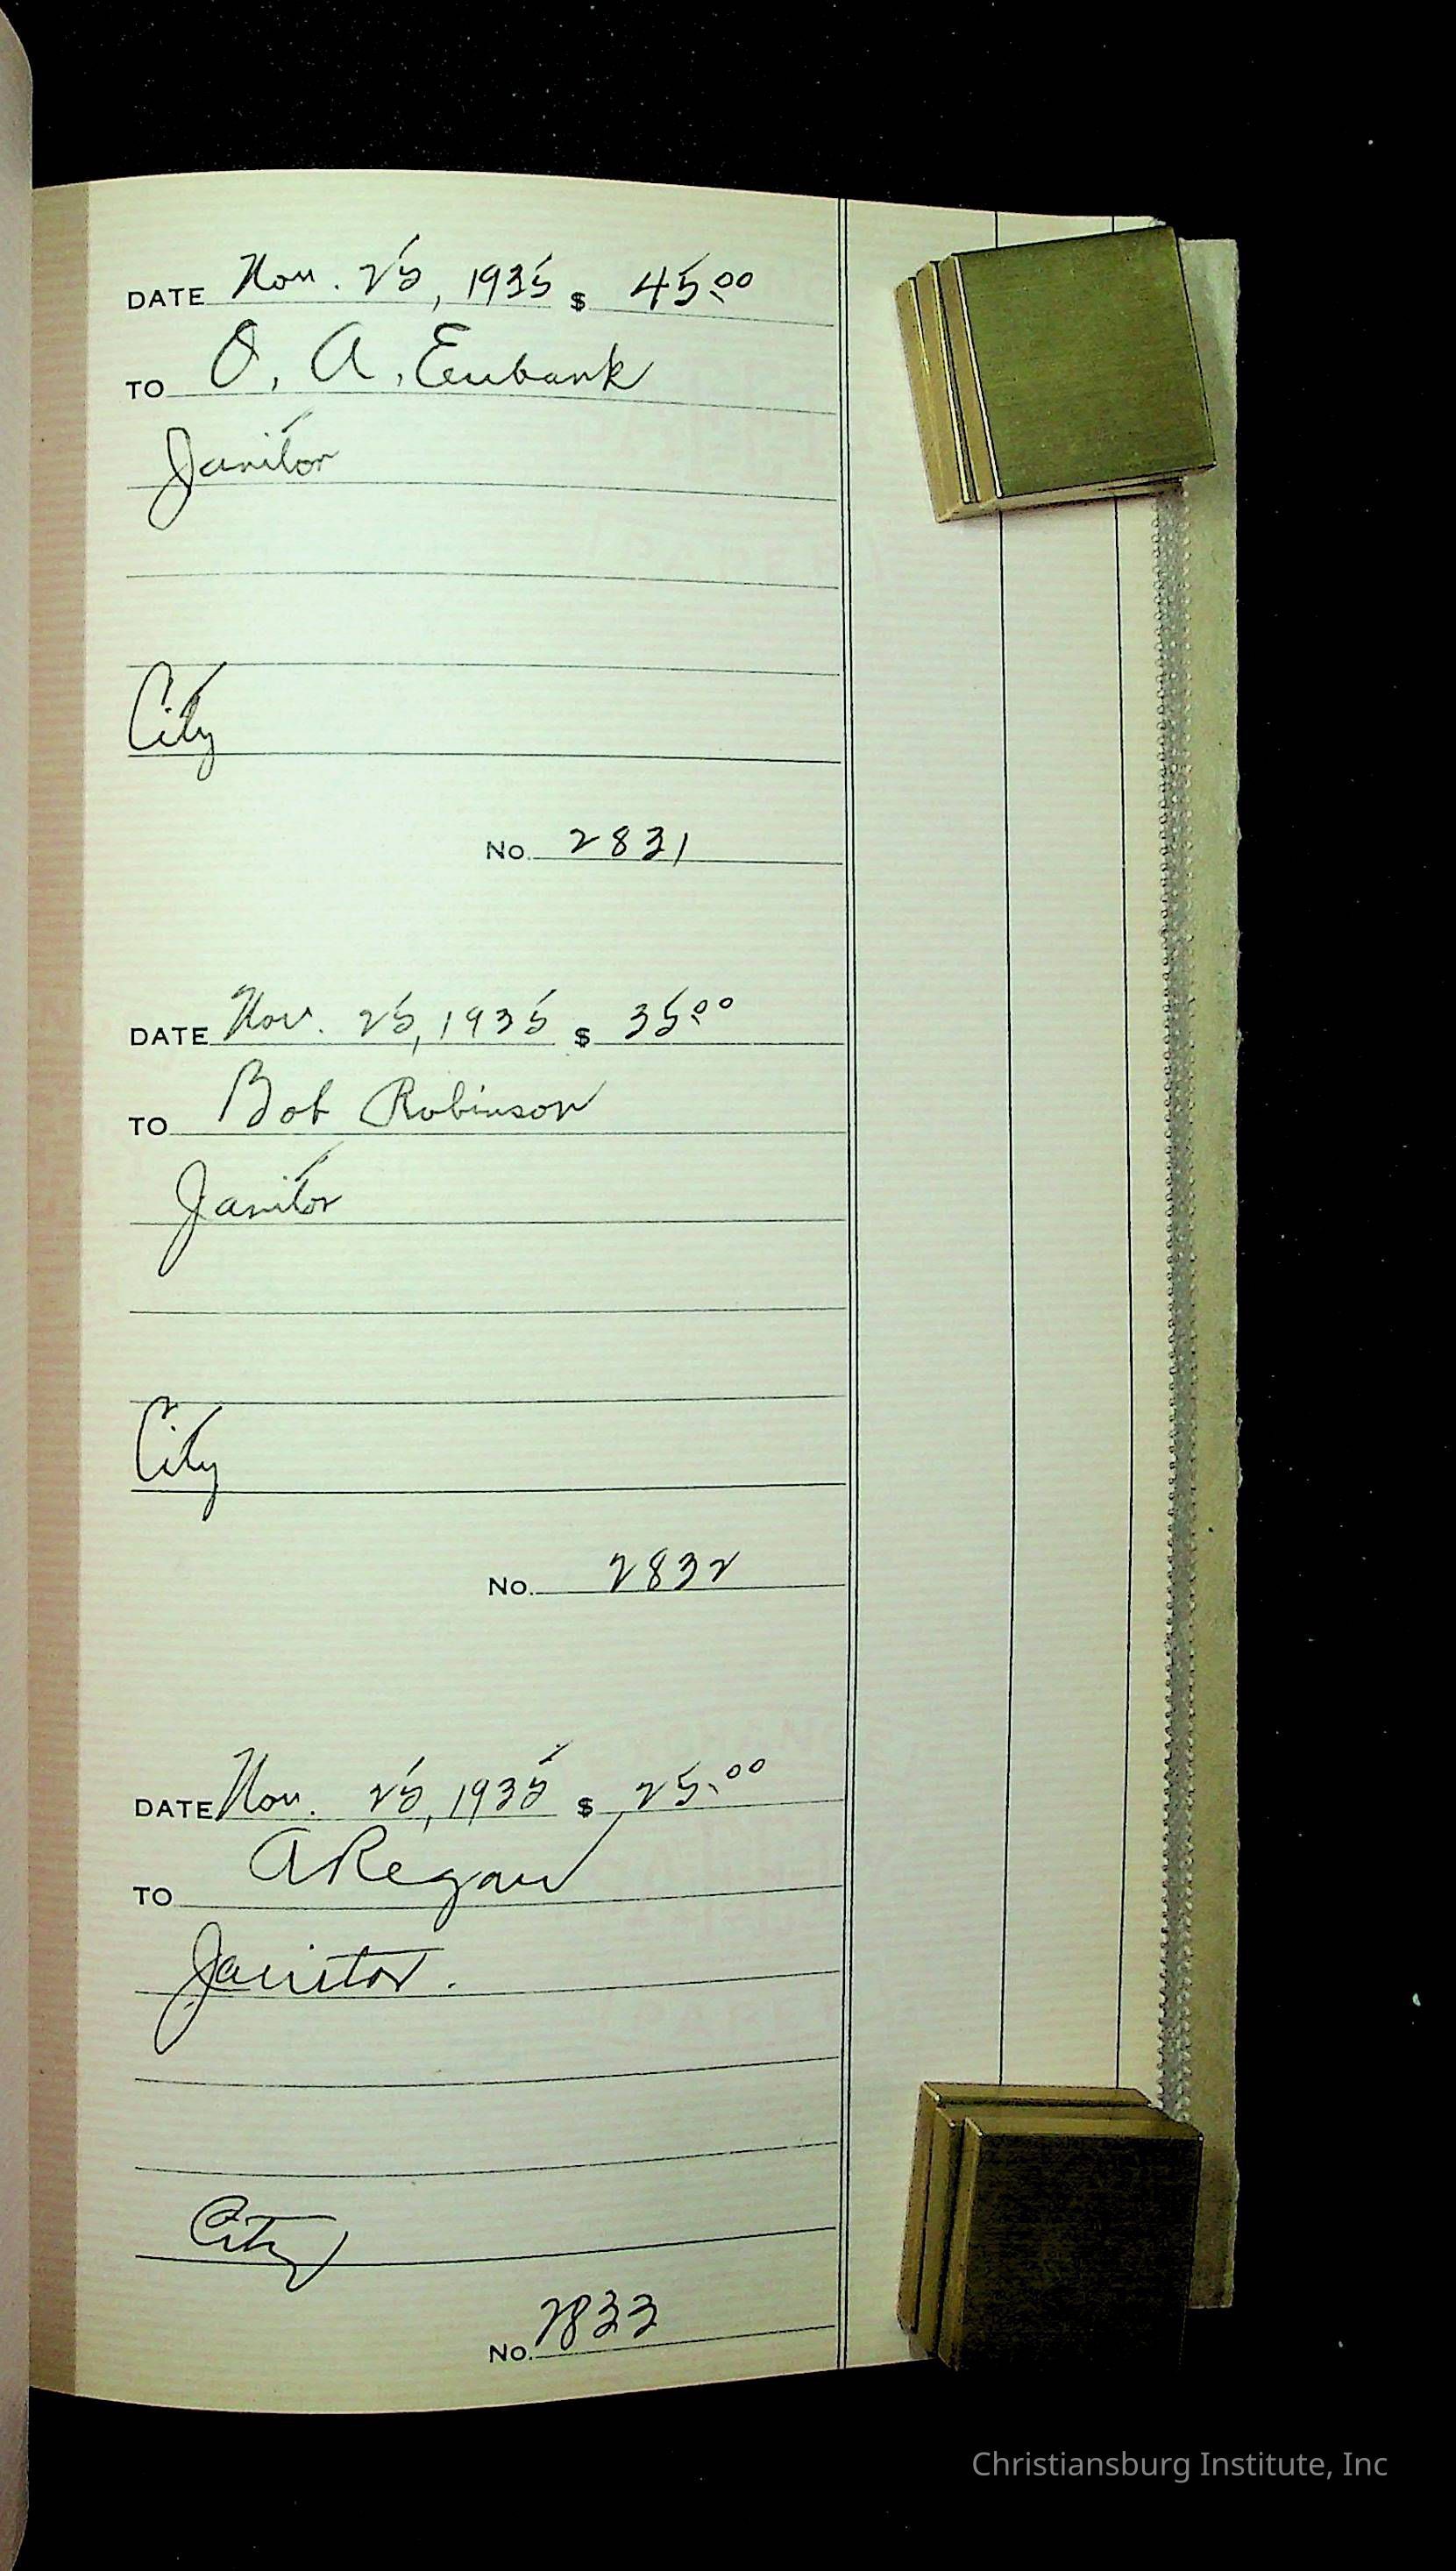 DATE Nov. 25, 1935 $ 45.00
TO O. A. Eubank
Janitor
City
No. 2831
DATE Nov. 25, 1935 $ 35.00
TO Bob Robinson
Janitor
City
No. 2832
DATE Nov. 25, 1935 $ 25.00
TO A Regan
Janitor.
City
No. 2833
Christiansburg Institute, Inc